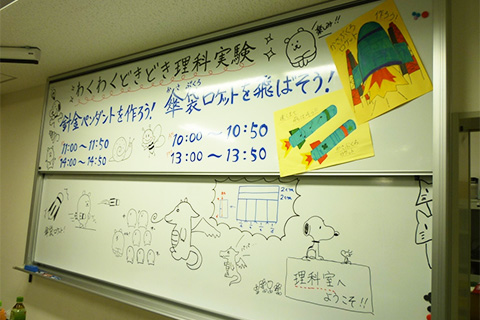 わくわくどきどき理科実験
針金ペンダントを作ろう!
11:00〜11:50
14:00〜14:50
かさ ぶくろ
傘袋ロケットを飛ばそう!
10:00〜10:50
13:00〜13:50
2cm
2cm
理科室へ
ようこそ!!